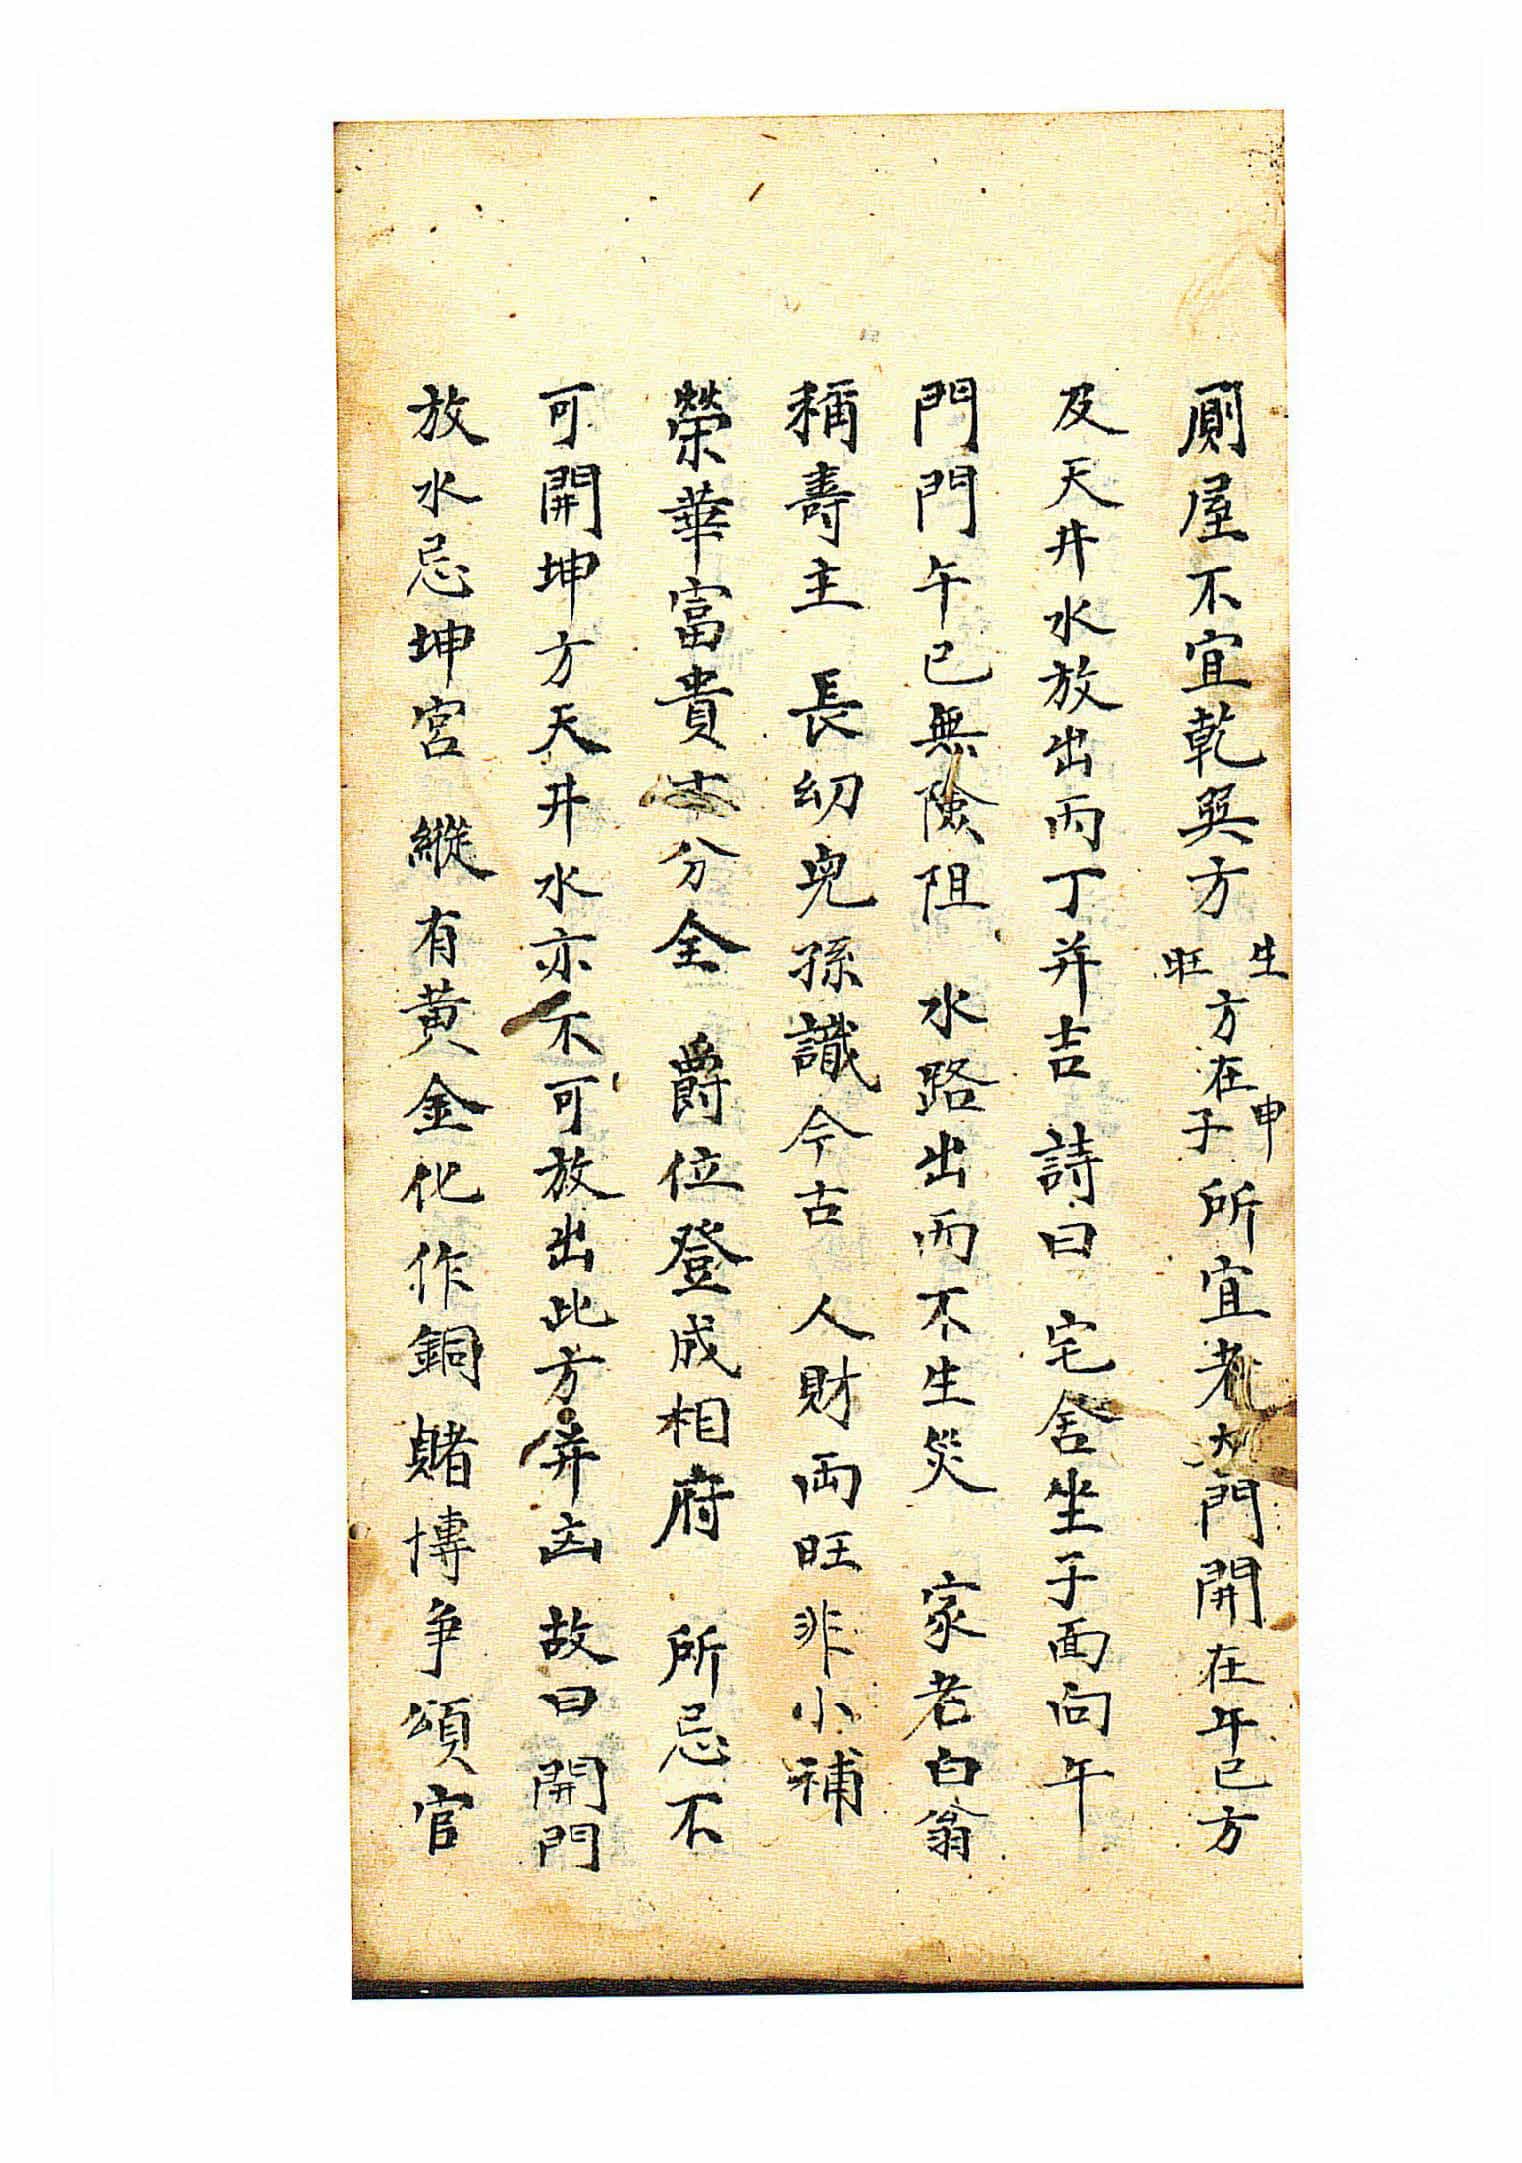 厠屋不宜乾巽方生旺方在申子所宜者大門開在午巳方
及天井水放出丙丁并吉 詩曰 宅舍坐子面向午
門門午巳無險阻 水路出丙不生災 家老白翁
稱壽主 長幼兒孫識今古 人財両旺非小補
榮華富貴十分全 爵位登成相府 所忌不
可開坤方天井水亦不可放出此方并凶故曰開門
放水忌坤宮 縱有黃金化作銅 賭博爭頌官